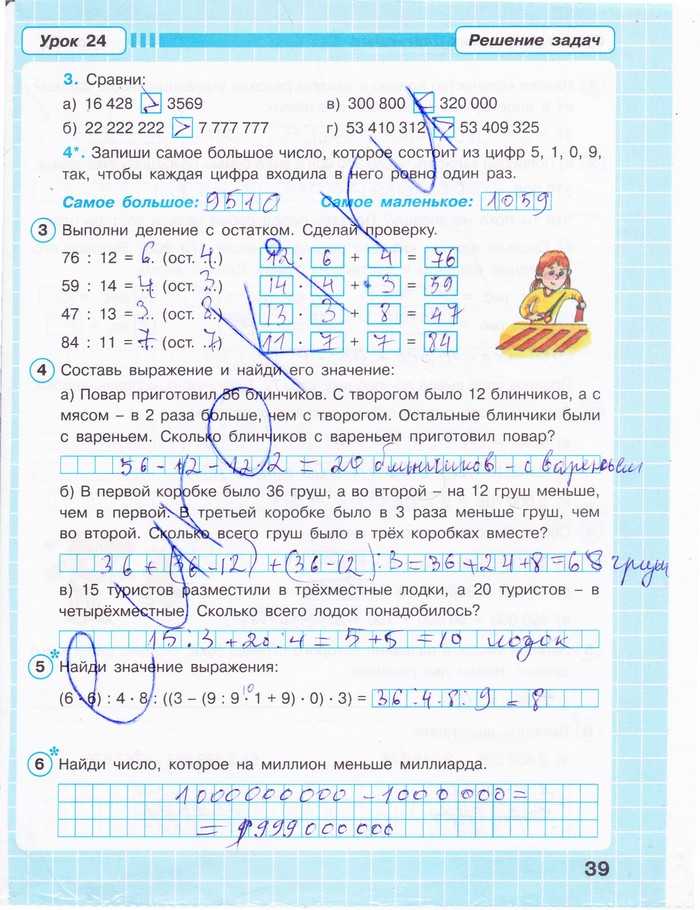 Урок 24
Решение задач
3. Сравни:
а) 16 428 > 3569
в) 300 800 < 320 000
б) 22 222 222 > 7 777 777
г) 53 410 312 > 53 409 325
4*. Запиши самое большое число, которое состоит из цифр 5, 1, 0, 9,
так, чтобы каждая цифра входила в него ровно один раз.
Самое большое: 9510 Самое маленькое: 1059
3 Выполни деление с остатком. Сделай проверку.
76 : 12 = 6. (ост. 4.) 12 · 6 + 4 = 76
59 : 14 = 4 (ост. 3.) 14 · 4 + 3 = 59
47 : 13 = 3. (ост. 8.) 13 · 3 + 8 = 47
84 : 11 = 7. (ост. 7) 11 · 7 + 7 = 84
4 Составь выражение и найди его значение:
а) Повар приготовил 56 блинчиков. С творогом было 12 блинчиков, а с
мясом – в 2 раза больше, чем с творогом. Остальные блинчики были
с вареньем. Сколько блинчиков с вареньем приготовил повар?
56 - 12 - 12·2 = 20 блинчиков - с вареньем
б) В первой коробке было 36 груш, а во второй – на 12 груш меньше,
чем в первой. В третьей коробке было в 3 раза меньше груш, чем
во второй. Сколько всего груш было в трёх коробках вместе?
36 + (36-12) + (36-12):3=36+24+8=68 груш
в) 15 туристов разместили в трёхместные лодки, а 20 туристов – в
четырёхместные. Сколько всего лодок понадобилось?
15:3+20:4=5+5=10 лодок
5* Найди значение выражения:
(6 · 6) : 4 · 8 : ((3 – (9 : 9 · 1 + 9) · 0) · 3) = 36:4·8:9=8
10
6* Найди число, которое на миллион меньше миллиарда.
1000000000 - 1000000=
= 999000000
39
гдз